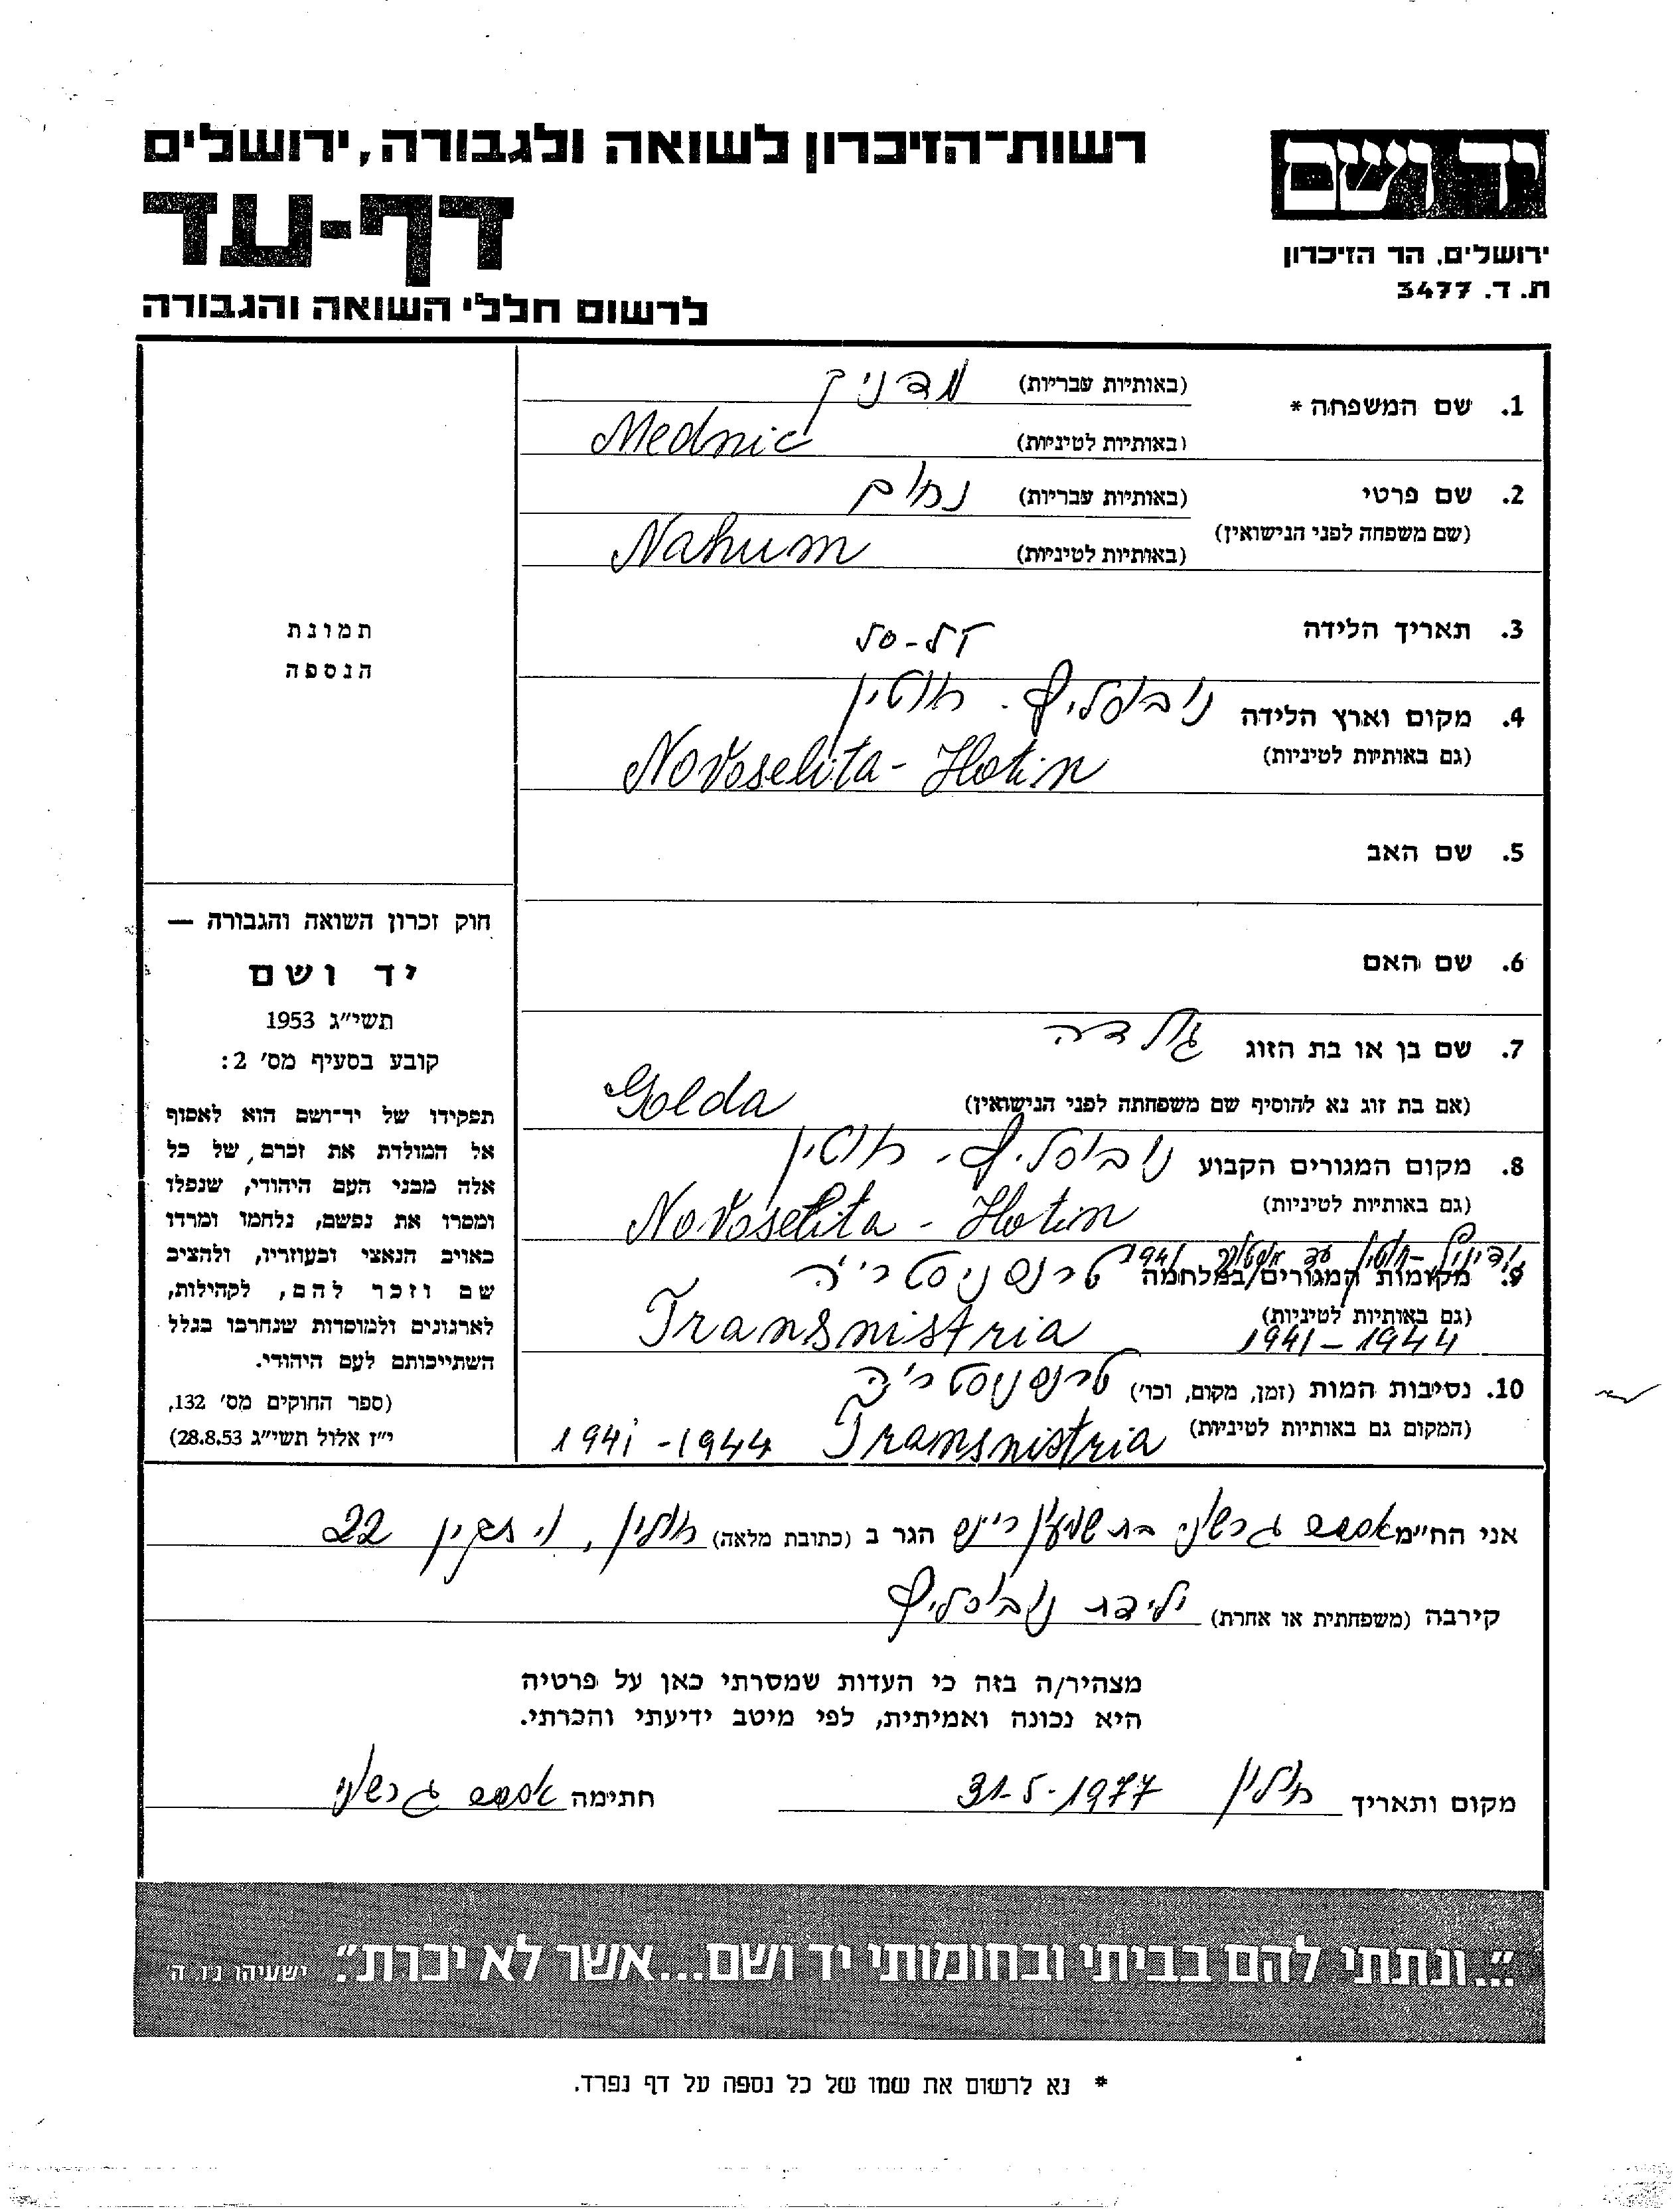 יד ושם
ירושלים, הר הזיכרון
ת. ד. 3477
רשות־הזיכרון לשואה ולגבורה, ירושלים
דף-עד
לרשום חללי השואה והגבורה
1. שם המשפחה *
(באותיות עבריות) מדניק
(באותיות לטיניות) Mednic
2. שם פרטי
(שם משפחה לפני הנישואין)
(באותיות עבריות) נחום
(באותיות לטיניות) Nahum
3. תאריך הלידה
4. מקום וארץ הלידה נובוסליץ. חוטין
(גם באותיות לטיניות) Novoselita - Hotin
5. שם האב
6. שם האם
7. שם בן או בת הזוג גולדה
(אם בת זוג נא להוסיף שם משפחתה לפני הנישואין) Golda
8. מקום המגורים הקבוע נובוסליץ. חוטין
(גם באותיות לטיניות) Novoselita - Hotin
חוטין עד 1941
9. מקומות המגורים במלחמה טרנסניסטריה
(גם באותיות לטיניות) Transnistria 1941-1944
10. נסיבות המות (זמן, מקום, וכו') טרנסניסטריה
(המקום גם באותיות לטיניות) Transnistria 1941-1944
תמונת
הנספה
חוק זכרון השואה והגבורה —
יד ושם
תשי"ג 1953
קובע בסעיף מס' 2:
תפקידו של יד־ושם הוא לאסוף
אל המולדת את זכרם, של כל
אלה מבני העם היהודי, שנפלו
ומסרו את נפשם, נלחמו ומרדו
באויב הנאצי ובעוזריו, ולהציב
שם וזכר להם, לקהילות,
לארגונים ולמוסדות שנחרבו בגלל
השתייכותם לעם היהודי.
(ספר החוקים מס' 132,
י"ז אלול תשי"ג 28.8.53)
אני הח"מ אסתר גרשוני בת שמעון הגר ב (כתובת מלאה) חולון, 22
קירבה (משפחתית או אחרת) ילידת נובוסליץ
מצהיר/ה בזה כי העדות שמסרתי כאן על פרטיה
היא נכונה ואמיתית, לפי מיטב ידיעתי והכרתי.
מקום ותאריך חולון 31-5-1977 חתימה אסתר גרשוני
"...ונתתי להם בביתי ובחומותי יד ושם...אשר לא יכרת". ישעיהו נ"ו, ה'
* נא לרשום את שמו של כל נספה על דף נפרד.